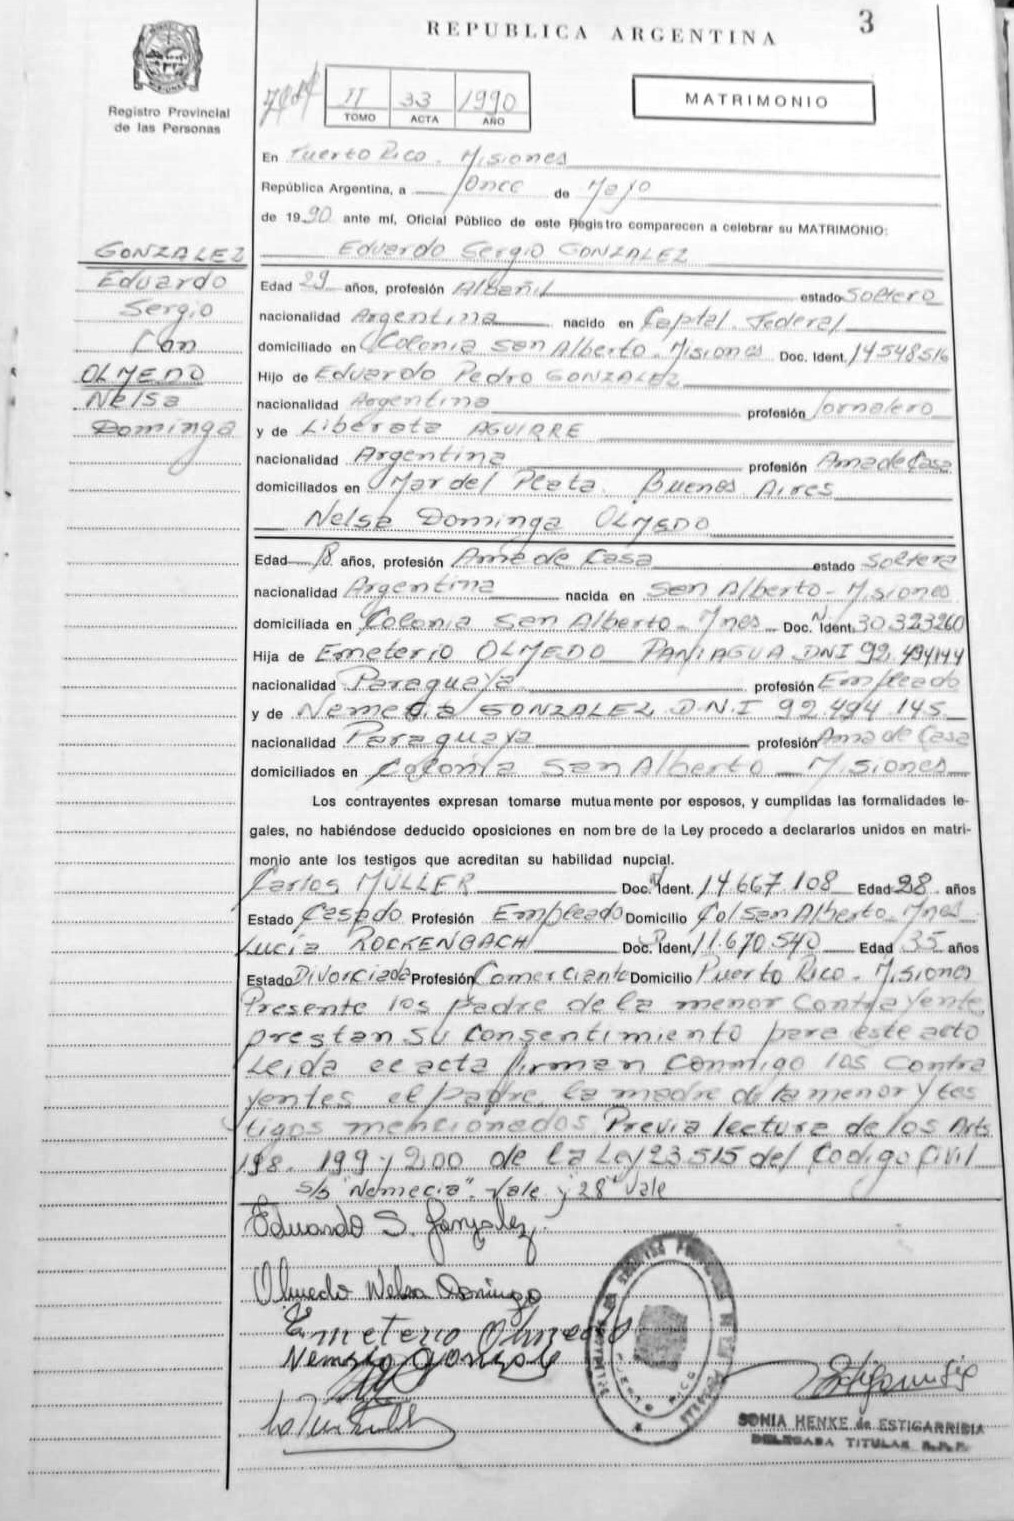 3
REPUBLICA ARGENTINA
Registro Provincial
de las Personas
II 33 1990
TOMO ACTA AÑO
MATRIMONIO
En Puerto Rico - Misiones
República Argentina, a Once de Mayo
de 1990 ante mí, Oficial Público de este Registro comparecen a celebrar su MATRIMONIO:
GONZALEZ
Eduardo
Sergio
Con
OLMEDO
Nelsa
Dominga
Eduardo Sergio GONZALEZ
Edad 29 años, profesión Albañil estado Soltero
nacionalidad Argentina nacido en Capital Federal
domiciliado en Colonia San Alberto - Misiones Doc. Ident. 14548516
Hijo de Eduardo Pedro GONZALEZ
nacionalidad Argentina profesión Jornalero
y de Liberata AGUIRRE
nacionalidad Argentina profesión Ama de Casa
domiciliados en Mar del Plata. Buenos Aires
Nelsa Dominga OLMEDO
Edad 18 años, profesión Ama de Casa estado Soltera
nacionalidad Argentina nacida en San Alberto - Misiones
domiciliada en Colonia San Alberto - Mnes Doc. Ident. 30323260
Hija de Emeterio OLMEDO PANIAGUA DNI 92.494144
nacionalidad Paraguaya profesión Empleado
y de Nemecia GONZALEZ D.N.I 92.494.145
nacionalidad Paraguaya profesión Ama de Casa
domiciliados en Colonia San Alberto - Misiones
Los contrayentes expresan tomarse mutuamente por esposos, y cumplidas las formalidades le-
gales, no habiéndose deducido oposiciones en nombre de la Ley procedo a declararlos unidos en matri-
monio ante los testigos que acreditan su habilidad nupcial.
Carlos MÜLLER Doc. Ident. 14.667.108 Edad 28 años
Estado Casado Profesión Empleado Domicilio Col San Alberto - Mnes
Lucía ROCKENBACH Doc. Ident. 11.670.540 Edad 35 años
Estado Divorciada Profesión Comerciante Domicilio Puerto Rico - Misiones
Presente los padre de la menor contrayente
prestan su consentimiento para este acto
Leida el acta firman conmigo los contra
yentes el padre, la madre de la menor y tes
tigos mencionados Previa lectura de los Arts
198. 199 y 200 de la Ley 23.515 del Codigo Civil
s/b "Nemecia". Vale y "28" Vale
Eduardo S. Gonzalez
Olmedo Nelsa Dominga
Emeterio Olmedo
SONIA HENKE de ESTIGARRIBIA
DELEGADA TITULAR R.P.P.